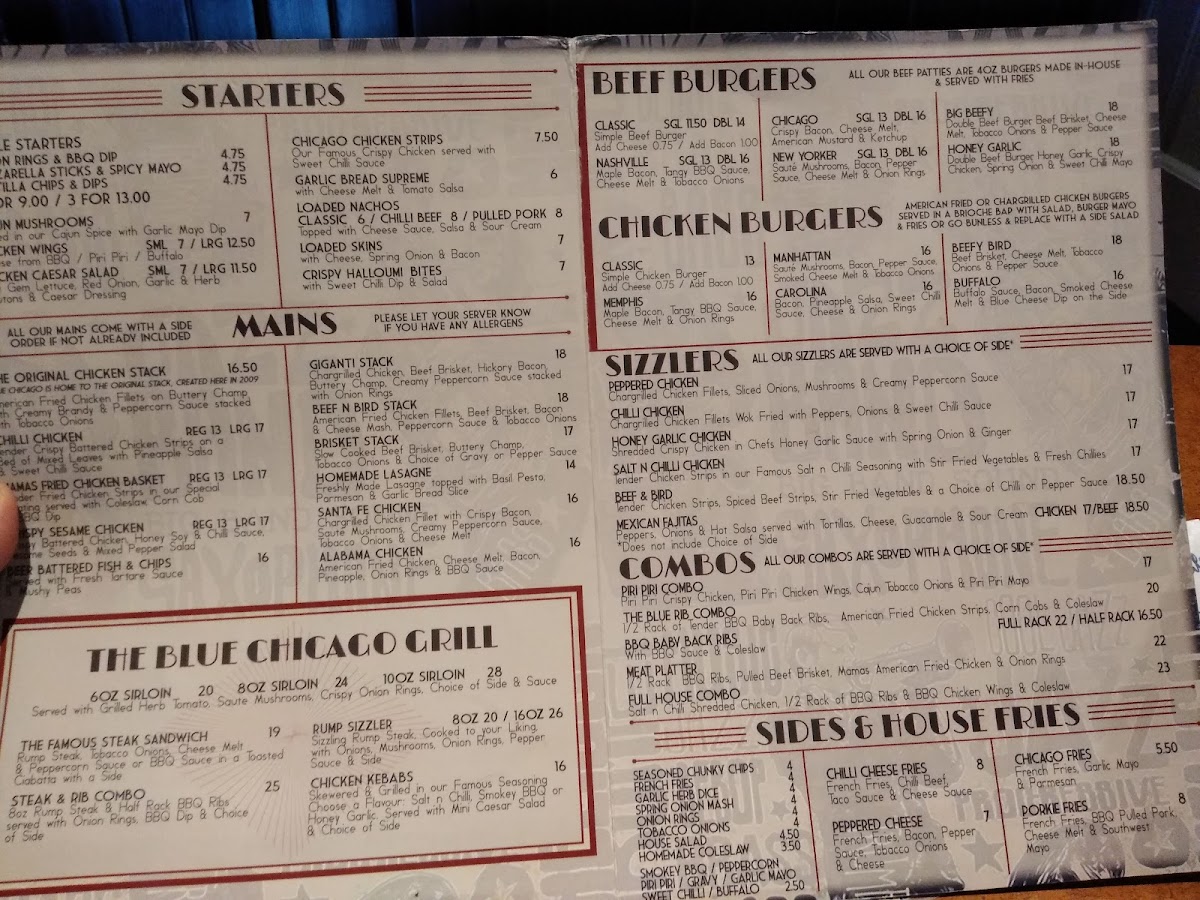 STARTERS
STARTERS
RINGS & BBQ DIP 4.75
STICKS & SPICY MAYO 4.75
CHIPS & DIPS 4.75
9.00 / 3 FOR 13.00
MUSHROOMS 7
in our Cajun Spice with Garlic Mayo Dip
WINGS SML 7 / LRG 12.50
from BBQ / Piri Piri / Buffalo
CAESAR SALAD SML 7 / LRG 11.50
Gem Lettuce, Red Onion, Garlic & Herb
& Caesar Dressing
CHICAGO CHICKEN STRIPS 7.50
Our Famous Crispy Chicken served with
Sweet Chilli Sauce
GARLIC BREAD SUPREME 6
with Cheese Melt & Tomato Salsa
LOADED NACHOS
CLASSIC 6 / CHILLI BEEF 8 / PULLED PORK 8
Topped with Cheese Sauce, Salsa & Sour Cream
LOADED SKINS 7
with Cheese, Spring Onion & Bacon
CRISPY HALLOUMI BITES 7
with Sweet Chilli Dip & Salad
ALL OUR MAINS COME WITH A SIDE
ORDER IF NOT ALREADY INCLUDED
MAINS
PLEASE LET YOUR SERVER KNOW
IF YOU HAVE ANY ALLERGENS
ORIGINAL CHICKEN STACK 16.50
CHICAGO IS HOME TO THE ORIGINAL STACK, CREATED HERE IN 2009
Fried Chicken Fillets on Buttery Champ
Creamy Brandy & Peppercorn Sauce stacked
Tobacco Onions
CHICKEN REG 13 LRG 17
Crispy Battered Chicken Strips on a
of Mixed Leaves with Pineapple Salsa
Sweet Chilli Sauce
FRIED CHICKEN BASKET REG 13 LRG 17
Fried Chicken Strips in our Special
served with Coleslaw, Corn Cob
Dip
SESAME CHICKEN REG 13 LRG 17
Battered Chicken, Honey Soy & Chilli Sauce,
Seeds & Mixed Pepper Salad
BATTERED FISH & CHIPS 16
with Fresh Tartare Sauce
Mushy Peas
GIGANTI STACK 18
Chargrilled Chicken, Beef Brisket, Hickory Bacon,
Buttery Champ, Creamy Peppercorn Sauce stacked
with Onion Rings
BEEF N BIRD STACK 18
American Fried Chicken Fillets, Beef Brisket, Bacon
& Cheese Mash, Peppercorn Sauce & Tobacco Onions
BRISKET STACK 17
Slow Cooked Beef Brisket, Buttery Champ,
Tobacco Onions & Choice of Gravy or Pepper Sauce
HOMEMADE LASAGNE 14
Freshly Made Lasagne topped with Basil Pesto,
Parmesan & Garlic Bread Slice
SANTA FE CHICKEN 16
Chargrilled Chicken Fillet with Crispy Bacon,
Sauté Mushrooms, Creamy Peppercorn Sauce,
Tobacco Onions & Cheese Melt
ALABAMA CHICKEN 16
American Fried Chicken, Cheese Melt, Bacon,
Pineapple, Onion Rings & BBQ Sauce
THE BLUE CHICAGO GRILL
6OZ SIRLOIN 20 8OZ SIRLOIN 24 10OZ SIRLOIN 28
Served with Grilled Herb Tomato, Sauté Mushrooms, Crispy Onion Rings, Choice of Side & Sauce
THE FAMOUS STEAK SANDWICH 19
Rump Steak, Tobacco Onions, Cheese Melt
& Peppercorn Sauce or BBQ Sauce in a Toasted
Ciabatta with a Side
STEAK & RIB COMBO 25
8oz Rump Steak & Half Rack BBQ Ribs
served with Onion Rings, BBQ Dip & Choice
of Side
RUMP SIZZLER 8OZ 20 / 16OZ 26
Sizzling Rump Steak, Cooked to your Liking,
with Onions, Mushrooms, Onion Rings, Pepper
Sauce & Side
CHICKEN KEBABS 16
Skewered & Grilled in our Famous Seasoning
Choose a Flavour: Salt n Chilli, Smokey BBQ or
Honey Garlic. Served with Mini Caesar Salad
& Choice of Side
BEEF BURGERS
ALL OUR BEEF PATTIES ARE 4OZ BURGERS MADE IN-HOUSE
& SERVED WITH FRIES
CLASSIC SGL 11.50 DBL 14
Simple Beef Burger
Add Cheese 0.75 / Add Bacon 1.00
NASHVILLE SGL 13 DBL 16
Maple Bacon, Tangy BBQ Sauce,
Cheese Melt & Tobacco Onions
CHICAGO SGL 13 DBL 16
Crispy Bacon, Cheese Melt,
American Mustard & Ketchup
NEW YORKER SGL 13 DBL 16
Sauté Mushrooms, Bacon, Pepper
Sauce, Cheese Melt & Onion Rings
BIG BEEFY 18
Double Beef Burger Beef Brisket, Cheese
Melt, Tobacco Onions & Pepper Sauce
HONEY GARLIC 18
Double Beef Burger, Honey Garlic Crispy
Chicken, Spring Onion & Sweet Chilli Mayo
CHICKEN BURGERS
AMERICAN FRIED OR CHARGRILLED CHICKEN BURGERS
SERVED IN A BRIOCHE BAP WITH SALAD, BURGER MAYO
& FRIES OR GO BUNLESS & REPLACE WITH A SIDE SALAD
CLASSIC 13
Simple Chicken Burger
Add Cheese 0.75 / Add Bacon 1.00
MEMPHIS 16
Maple Bacon, Tangy BBQ Sauce,
Cheese Melt & Onion Rings
MANHATTAN 16
Sauté Mushrooms, Bacon, Pepper Sauce,
Smoked Cheese Melt & Tobacco Onions
CAROLINA 16
Bacon, Pineapple Salsa, Sweet Chilli
& Onion Rings
BEEFY BIRD 18
Beef Brisket, Cheese Melt, Tobacco
Onions & Pepper Sauce
BUFFALO 16
Buffalo Sauce, Bacon, Smoked Cheese
Melt & Blue Cheese Dip on the Side
SIZZLERS
ALL OUR SIZZLERS ARE SERVED WITH A CHOICE OF SIDE*
PEPPERED CHICKEN 17
Chargrilled Chicken Fillets, Sliced Onions, Mushrooms & Creamy Peppercorn Sauce
CHILLI CHICKEN 17
Chargrilled Chicken Fillets Wok Fried with Peppers, Onions & Sweet Chilli Sauce
HONEY GARLIC CHICKEN 17
Shredded Crispy Chicken in Chefs Honey Garlic Sauce with Spring Onion & Ginger
SALT N CHILLI CHICKEN 17
Tender Chicken Strips in our Famous Salt n Chilli Seasoning with Stir Fried Vegetables & Fresh Chillies
BEEF & BIRD 18.50
Tender Chicken Strips, Spiced Beef Strips, Stir Fried Vegetables & a Choice of Chilli or Pepper Sauce
MEXICAN FAJITAS CHICKEN 17/BEEF 18.50
Peppers, Onions & Hot Salsa served with Tortillas, Cheese, Guacamole & Sour Cream
*Does not include Choice of Side
COMBOS
ALL OUR COMBOS ARE SERVED WITH A CHOICE OF SIDE*
PIRI PIRI COMBO 17
Piri Piri Crispy Chicken, Piri Piri Chicken Wings, Cajun Tobacco Onions & Piri Piri Mayo
THE BLUE RIB COMBO 20
1/2 Rack of Tender BBQ Baby Back Ribs, American Fried Chicken Strips, Corn Cobs & Coleslaw
BBQ BABY BACK RIBS FULL RACK 22 / HALF RACK 16.50
With BBQ Sauce & Coleslaw
MEAT PLATTER 22
1/2 Rack BBQ Ribs, Pulled Beef Brisket, Mamas American Fried Chicken & Onion Rings
FULL HOUSE COMBO 23
Salt n Chilli Shredded Chicken, 1/2 Rack of BBQ Ribs & BBQ Chicken Wings & Coleslaw
SIDES & HOUSE FRIES
SEASONED CHUNKY CHIPS 4
FRENCH FRIES 4
GARLIC HERB DICE 4
SPRING ONION MASH 4
ONION RINGS 4
TOBACCO ONIONS 4
HOUSE SALAD 4.50
HOMEMADE COLESLAW 3.50
SMOKEY BBQ / PEPPERCORN
PIRI PIRI / GRAVY / GARLIC MAYO
SWEET CHILLI / BUFFALO 2.50
CHILLI CHEESE FRIES 8
French Fries, Chilli Beef,
Taco Sauce & Cheese Sauce
PEPPERED CHEESE 7
French Fries, Bacon, Pepper
Sauce, Tobacco Onions
& Cheese
CHICAGO FRIES 5.50
French Fries, Garlic Mayo
& Parmesan
PORKIE FRIES 8
French Fries, BBQ Pulled Pork,
Cheese Melt & Southwest
Mayo